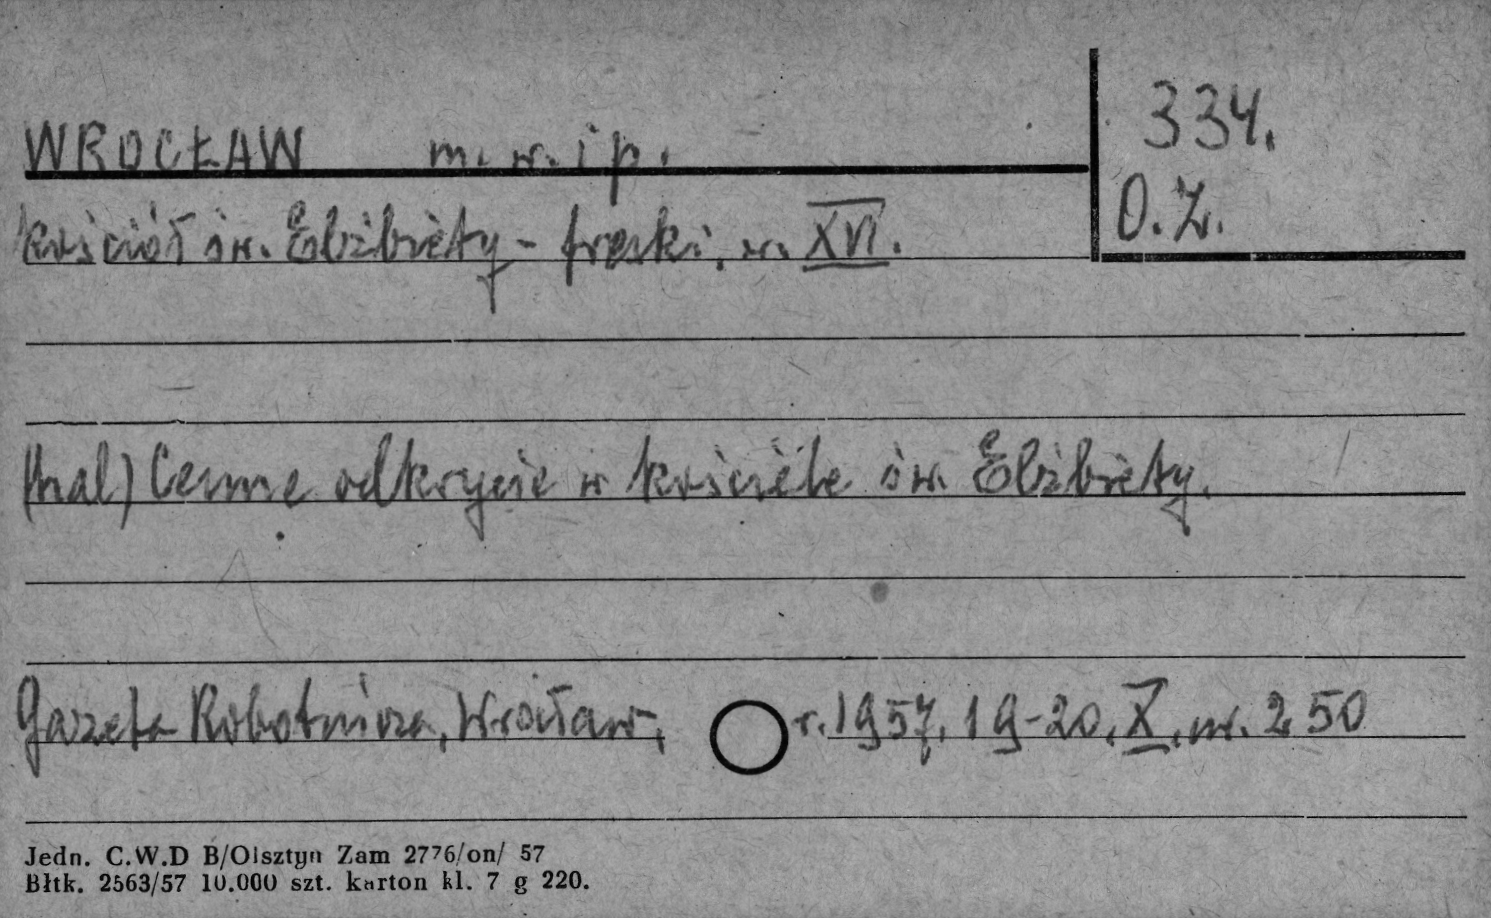 WROCŁAW m. w. i p.
334.
O.Z.
kościół św. Elżbiety - freski, w. XVI.
(hal) Cenne odkrycie w kościele św. Elżbiety.
Gazeta Robotnicza, Wrocław, r. 1957, 19-20. X. nr. 250
Jedn. C.W.D B/Olsztyn Zam 2776/on/ 57
Błtk. 2563/57 10.000 szt. karton kl. 7 g 220.